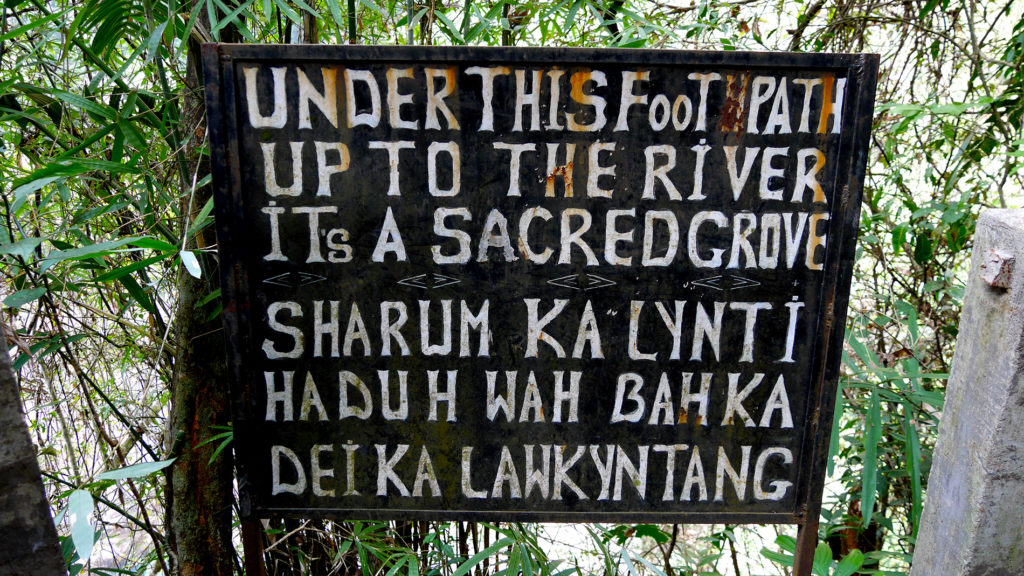 UNDER THIS FOOT PATH
UP TO THE RIVER
IT'S A SACRED GROVE
SHARUM KA LYNTI
HADUH WAH BAH KA
DEI KA LAWKYNTANG